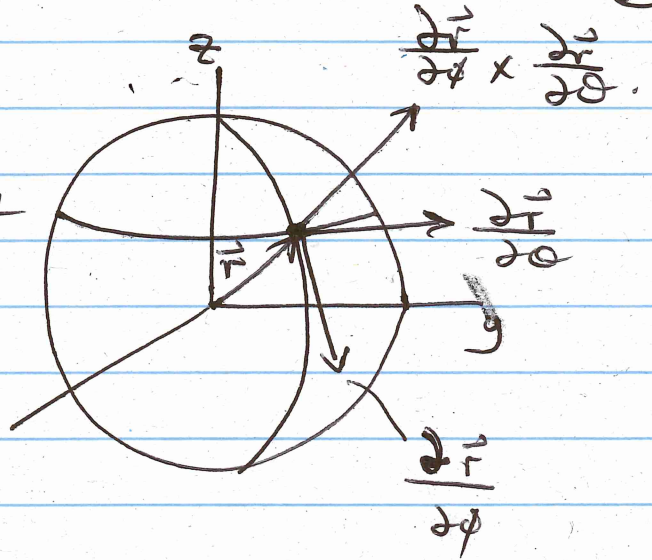 z
∂r⃗/∂φ × ∂r⃗/∂θ.
∂r⃗/∂θ
r⃗
y
∂r⃗/∂φ